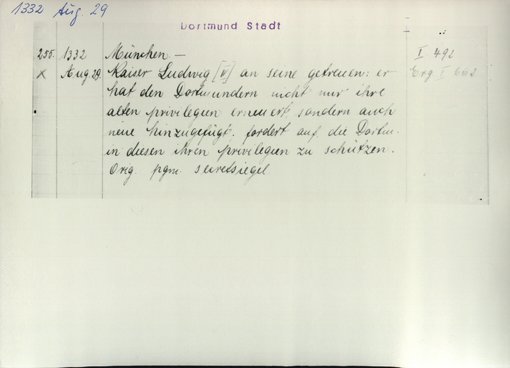 1332 Aug. 29
Dortmund Stadt
255. 1332 München — I 492
x Aug 29 Kaiser Ludwig [V] an seine getreuen: er Erg I
hat den Dortmundern nicht nur ihre
alten privilegien erneuert sondern auch
neue hinzugefügt, fordert auf die Dortm.
in diesen ihren privilegien zu schützen.
Orig. pgm. secretsiegel